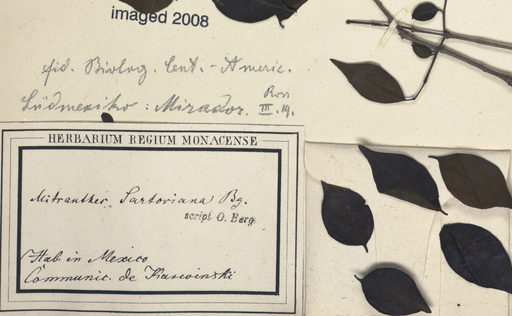 imaged 2008
fid. Biolog. Cent.-Americ.
Südmexiko: Mirador. Ross III. 19.
HERBARIUM REGIUM MONACENSE
Mitranthes Sartoriana Bg.
script O. Berg
Hab. in Mexico
Communic. de Karwinski